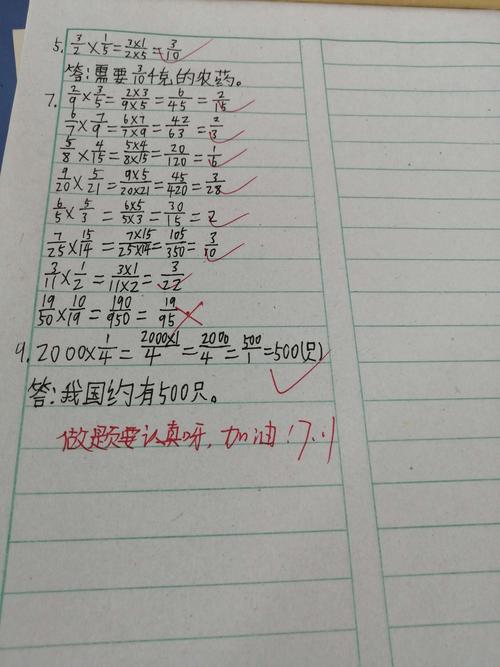 5. 3/2×1/5=3×1/2×5=3/10
答:需要3/10千克的农药。
7. 2/9×3/5=2×3/9×5=6/45=2/15
6/7×7/9=6×7/7×9=42/63=2/3
5/8×4/15=5×4/8×15=20/120=1/6
9/20×5/21=9×5/20×21=45/420=3/28
6/5×5/3=6×5/5×3=30/15=2
7/25×15/14=7×15/25×14=105/350=3/10
3/11×1/2=3×1/11×2=3/22
19/50×10/19=190/950=19/95
9. 2000×1/4=2000×1/4=2000/4=500/1=500(只)
答:我国约有500只。
做题要认真呀,加油!7.11